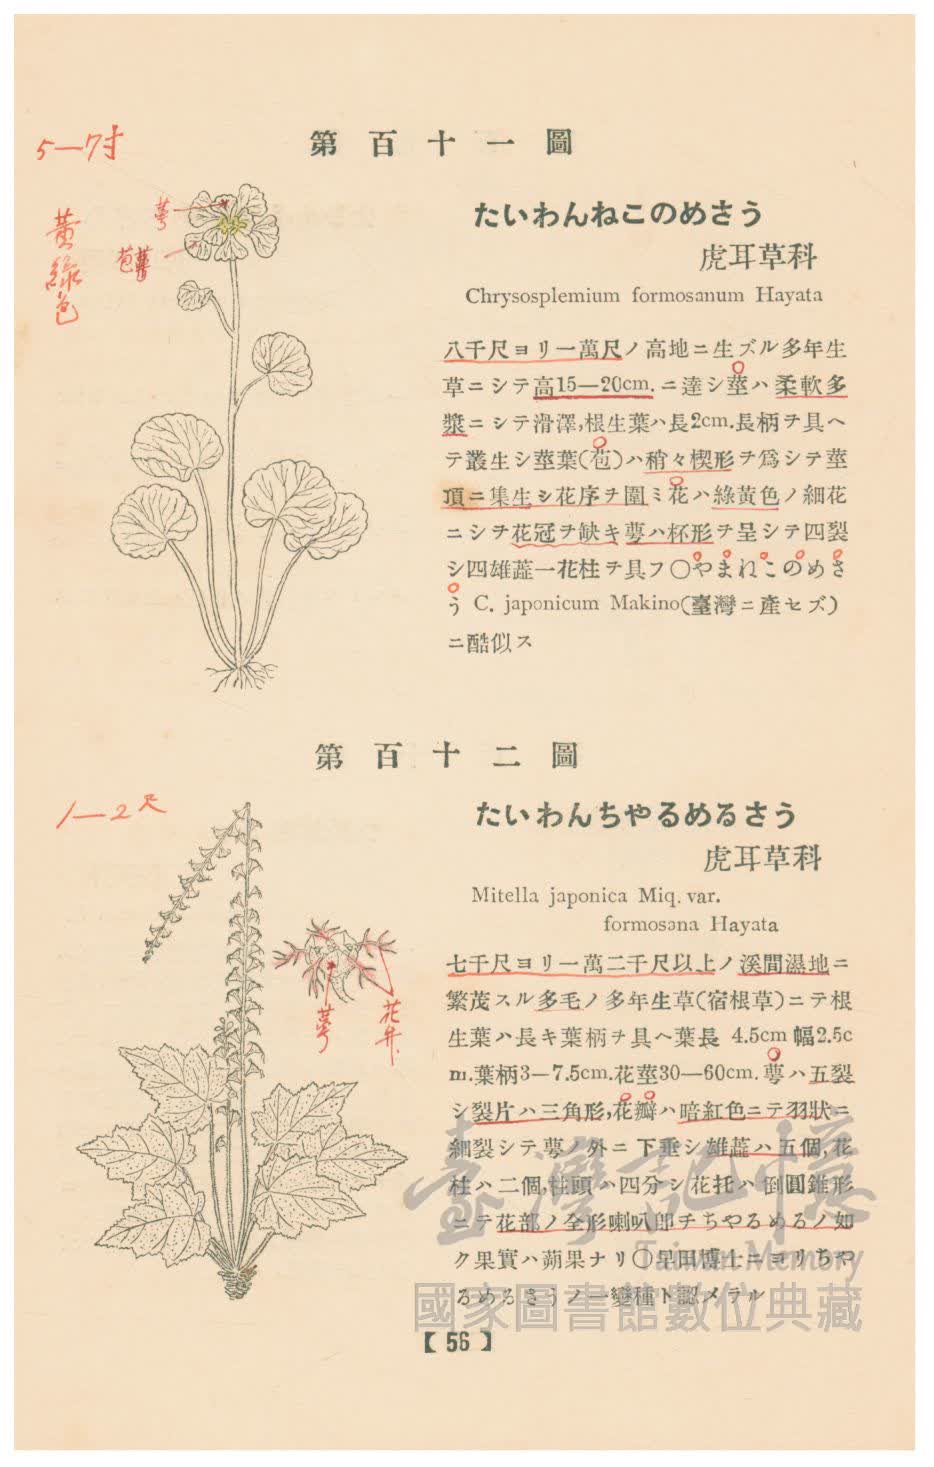 第百十一圖
5—7寸
黄綠色
萼
苞
たいわんねこのめさう
虎耳草科
Chrysosplemium formosanum Hayata
八千尺ヨリ一萬尺ノ高地ニ生ズル多年生
草ニシテ高15—20cm.ニ達シ莖ハ柔軟多
漿ニシテ滑澤,根生葉ハ長2cm.長柄ヲ具ヘ
テ叢生シ莖葉(苞)ハ稍々楔形ヲ爲シテ莖
頂ニ集生シ花序ヲ圍ミ花ハ綠黃色ノ細花
ニシテ花冠ヲ缺キ萼ハ杯形ヲ呈シテ四裂
シ四雄蕋一花柱ヲ具フ〇やまねこのめさ
う C. japonicum Makino(臺灣ニ產セズ)
ニ酷似ス
第百十二圖
1—2尺
萼
花弁
たいわんちやるめるさう
虎耳草科
Mitella japonica Miq. var.
formosana Hayata
七千尺ヨリ一萬二千尺以上ノ溪間濕地ニ
繁茂スル多毛ノ多年生草(宿根草)ニテ根
生葉ハ長キ葉柄ヲ具ヘ葉長 4.5cm 幅2.5c
m.葉柄3—7.5cm.花莖30—60cm.萼ハ五裂
シ裂片ハ三角形,花瓣ハ暗紅色ニテ羽狀ニ
細裂シテ萼ノ外ニ下垂シ雄蕋ハ五個,花
柱ハ二個,柱頭ハ四分シ花托ハ倒圓錐形
ニテ花部ノ全形喇叭卽チちやるめるノ如
ク果實ハ蒴果ナリ〇早田博士ニヨリちや
るめるさうノ一變種ト認メラル
臺灣記憶
Taiwan Memory
國家圖書館數位典藏
【56】